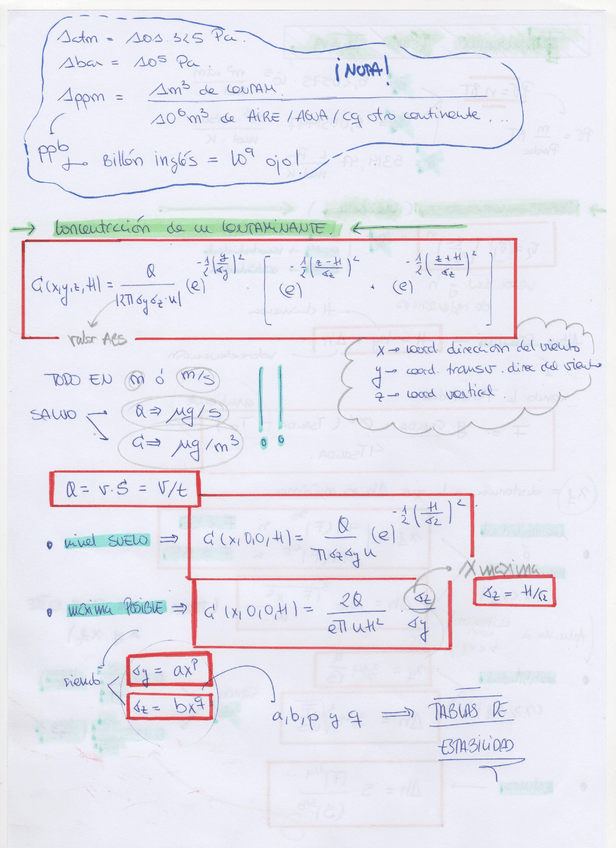 1atm = 101.325 Pa.
1bar = 10⁵ Pa.
¡NOTA!
1ppm = 1m³ de CONTAM. / 10⁶ m³ de AIRE / AGUA / cq otro continente...
ppb
↳ Billón inglés = 10⁹ ojo!
→ Concentración de un CONTAMINANTE. ←
C(x,y,z,H) = Q / |2πσyσz·u| (e)^(-1/2(y/σy)²) [ (e)^(-1/2((z-H)/σz)²) + (e)^(-1/2((z+H)/σz)²) ]
valor ABS
x → coord dirección del viento
y → coord. transv. direc del viento
z → coord vertical
TODO EN m ó m/s !!
SALVO → Q ⇒ μg/s
→ C ⇒ μg/m³
Q = v·S = V/t
• nivel SUELO ⇒ C(x,0,0,H) = Q / πσzσyu (e)^(-1/2(H/σz)²)
x maxima
σz = H/√2
• máxima POSIBLE ⇒ C(x,0,0,H) = 2Q / eπuH² σz/σy
siendo σy = axᵖ
σz = bx^q
a, b, p y q ⇒ TABLAS DE
ESTABILIDAD